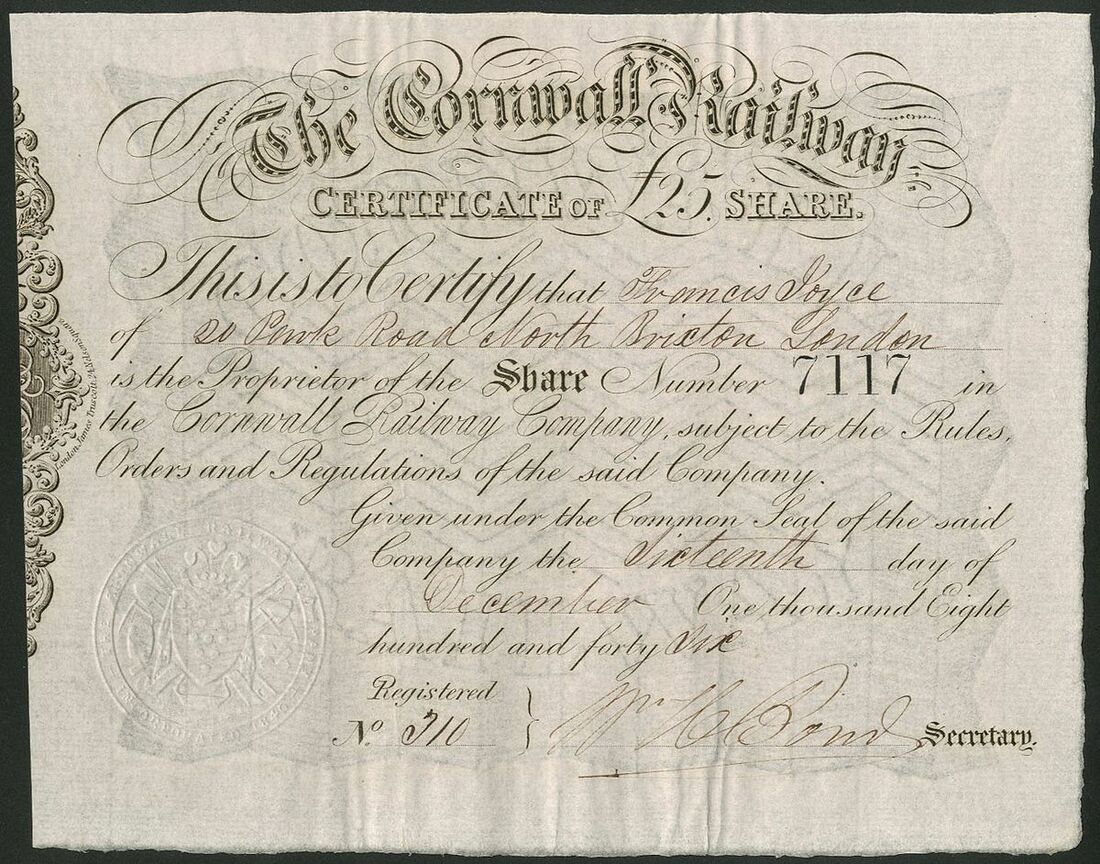 The Cornwall Railway,
CERTIFICATE OF £25. SHARE.
This is to Certify that Francis Joyce
of 20 Park Road North Brixton London
is the Proprietor of the Share Number 7117 in
the Cornwall Railway Company, subject to the Rules,
Orders and Regulations of the said Company.
Given under the Common Seal of the said
Company the Sixteenth day of
December One thousand Eight
hundred and forty Six
Registered
No. 710
Wm H Bond Secretary.
London, James Truscott